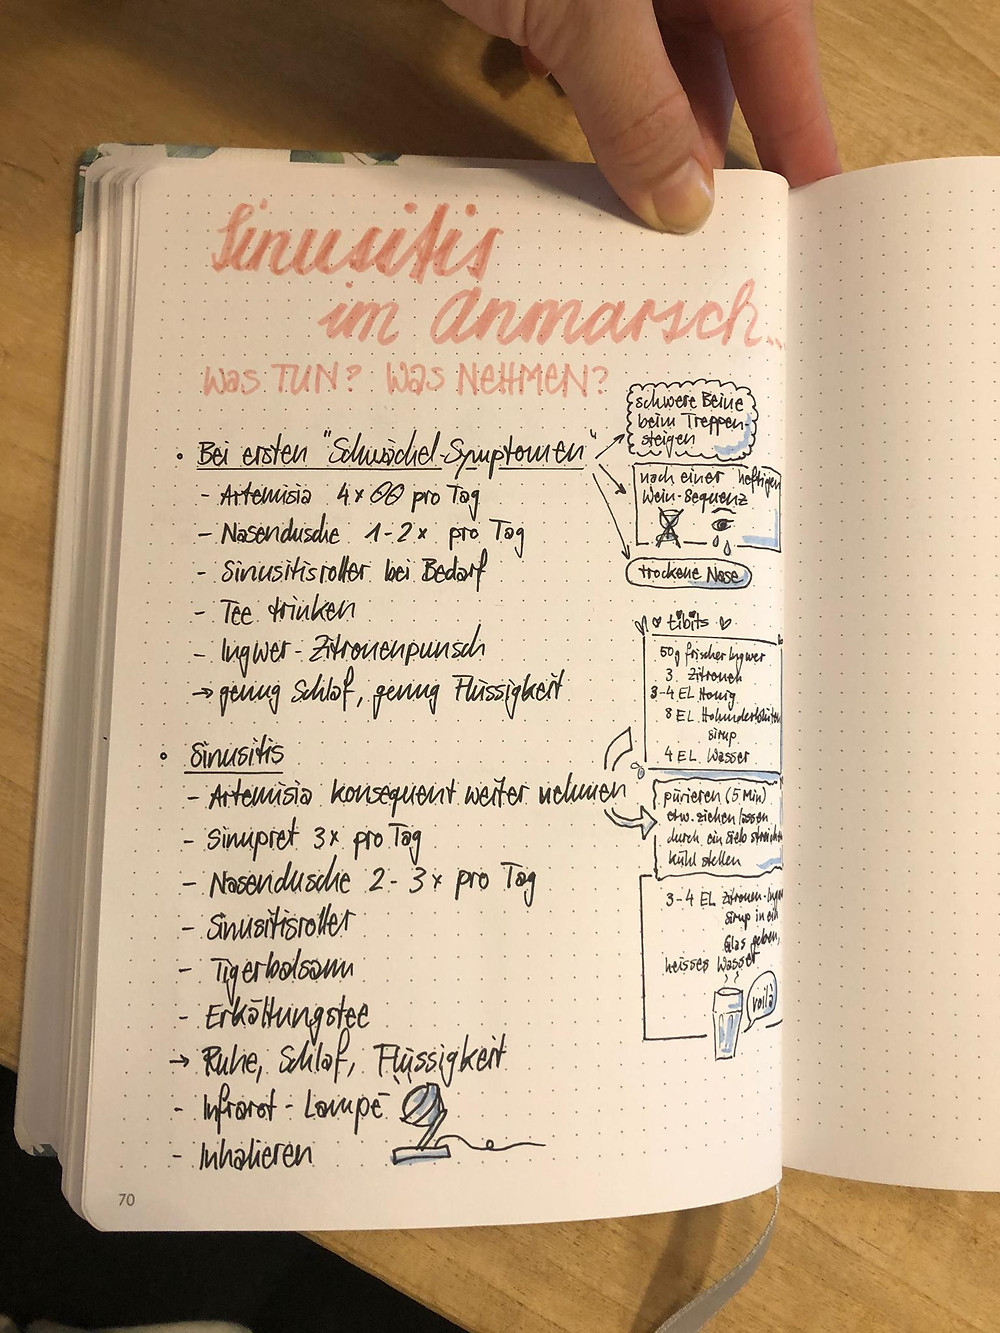 Sinusitis
im Anmarsch...
WAS TUN? WAS NEHMEN?
• Bei ersten "Schwächel-Symptomen"
- Artemisia 4x pro Tag
- Nasendusche 1-2x pro Tag
- Sinusitisroller bei Bedarf
- Tee trinken
- Ingwer-Zitronenpunsch
→ genug Schlaf, genug Flüssigkeit
• Sinusitis
- Artemisia konsequent weiter nehmen
- Sinupret 3x pro Tag
- Nasendusche 2-3x pro Tag
- Sinusitisroller
- Tigerbalsam
- Erkältungstee
→ Ruhe, Schlaf, Flüssigkeit
- Infrarot-Lampe
- Inhalieren
schwere Beine
beim Treppen-
steigen
nach einer heftigen
Wein-Sequenz
trockene Nase
tibits
50g frischer Ingwer
3 Zitronen
3-4 EL Honig
8 EL Holunderblüten
sirup
4 EL Wasser
pürieren (5 Min)
etw. ziehen lassen
durch ein Sieb
kühl stellen
3-4 EL Zitronen-
sirup in ein
Glas geben,
heisses Wasser
voilà
70